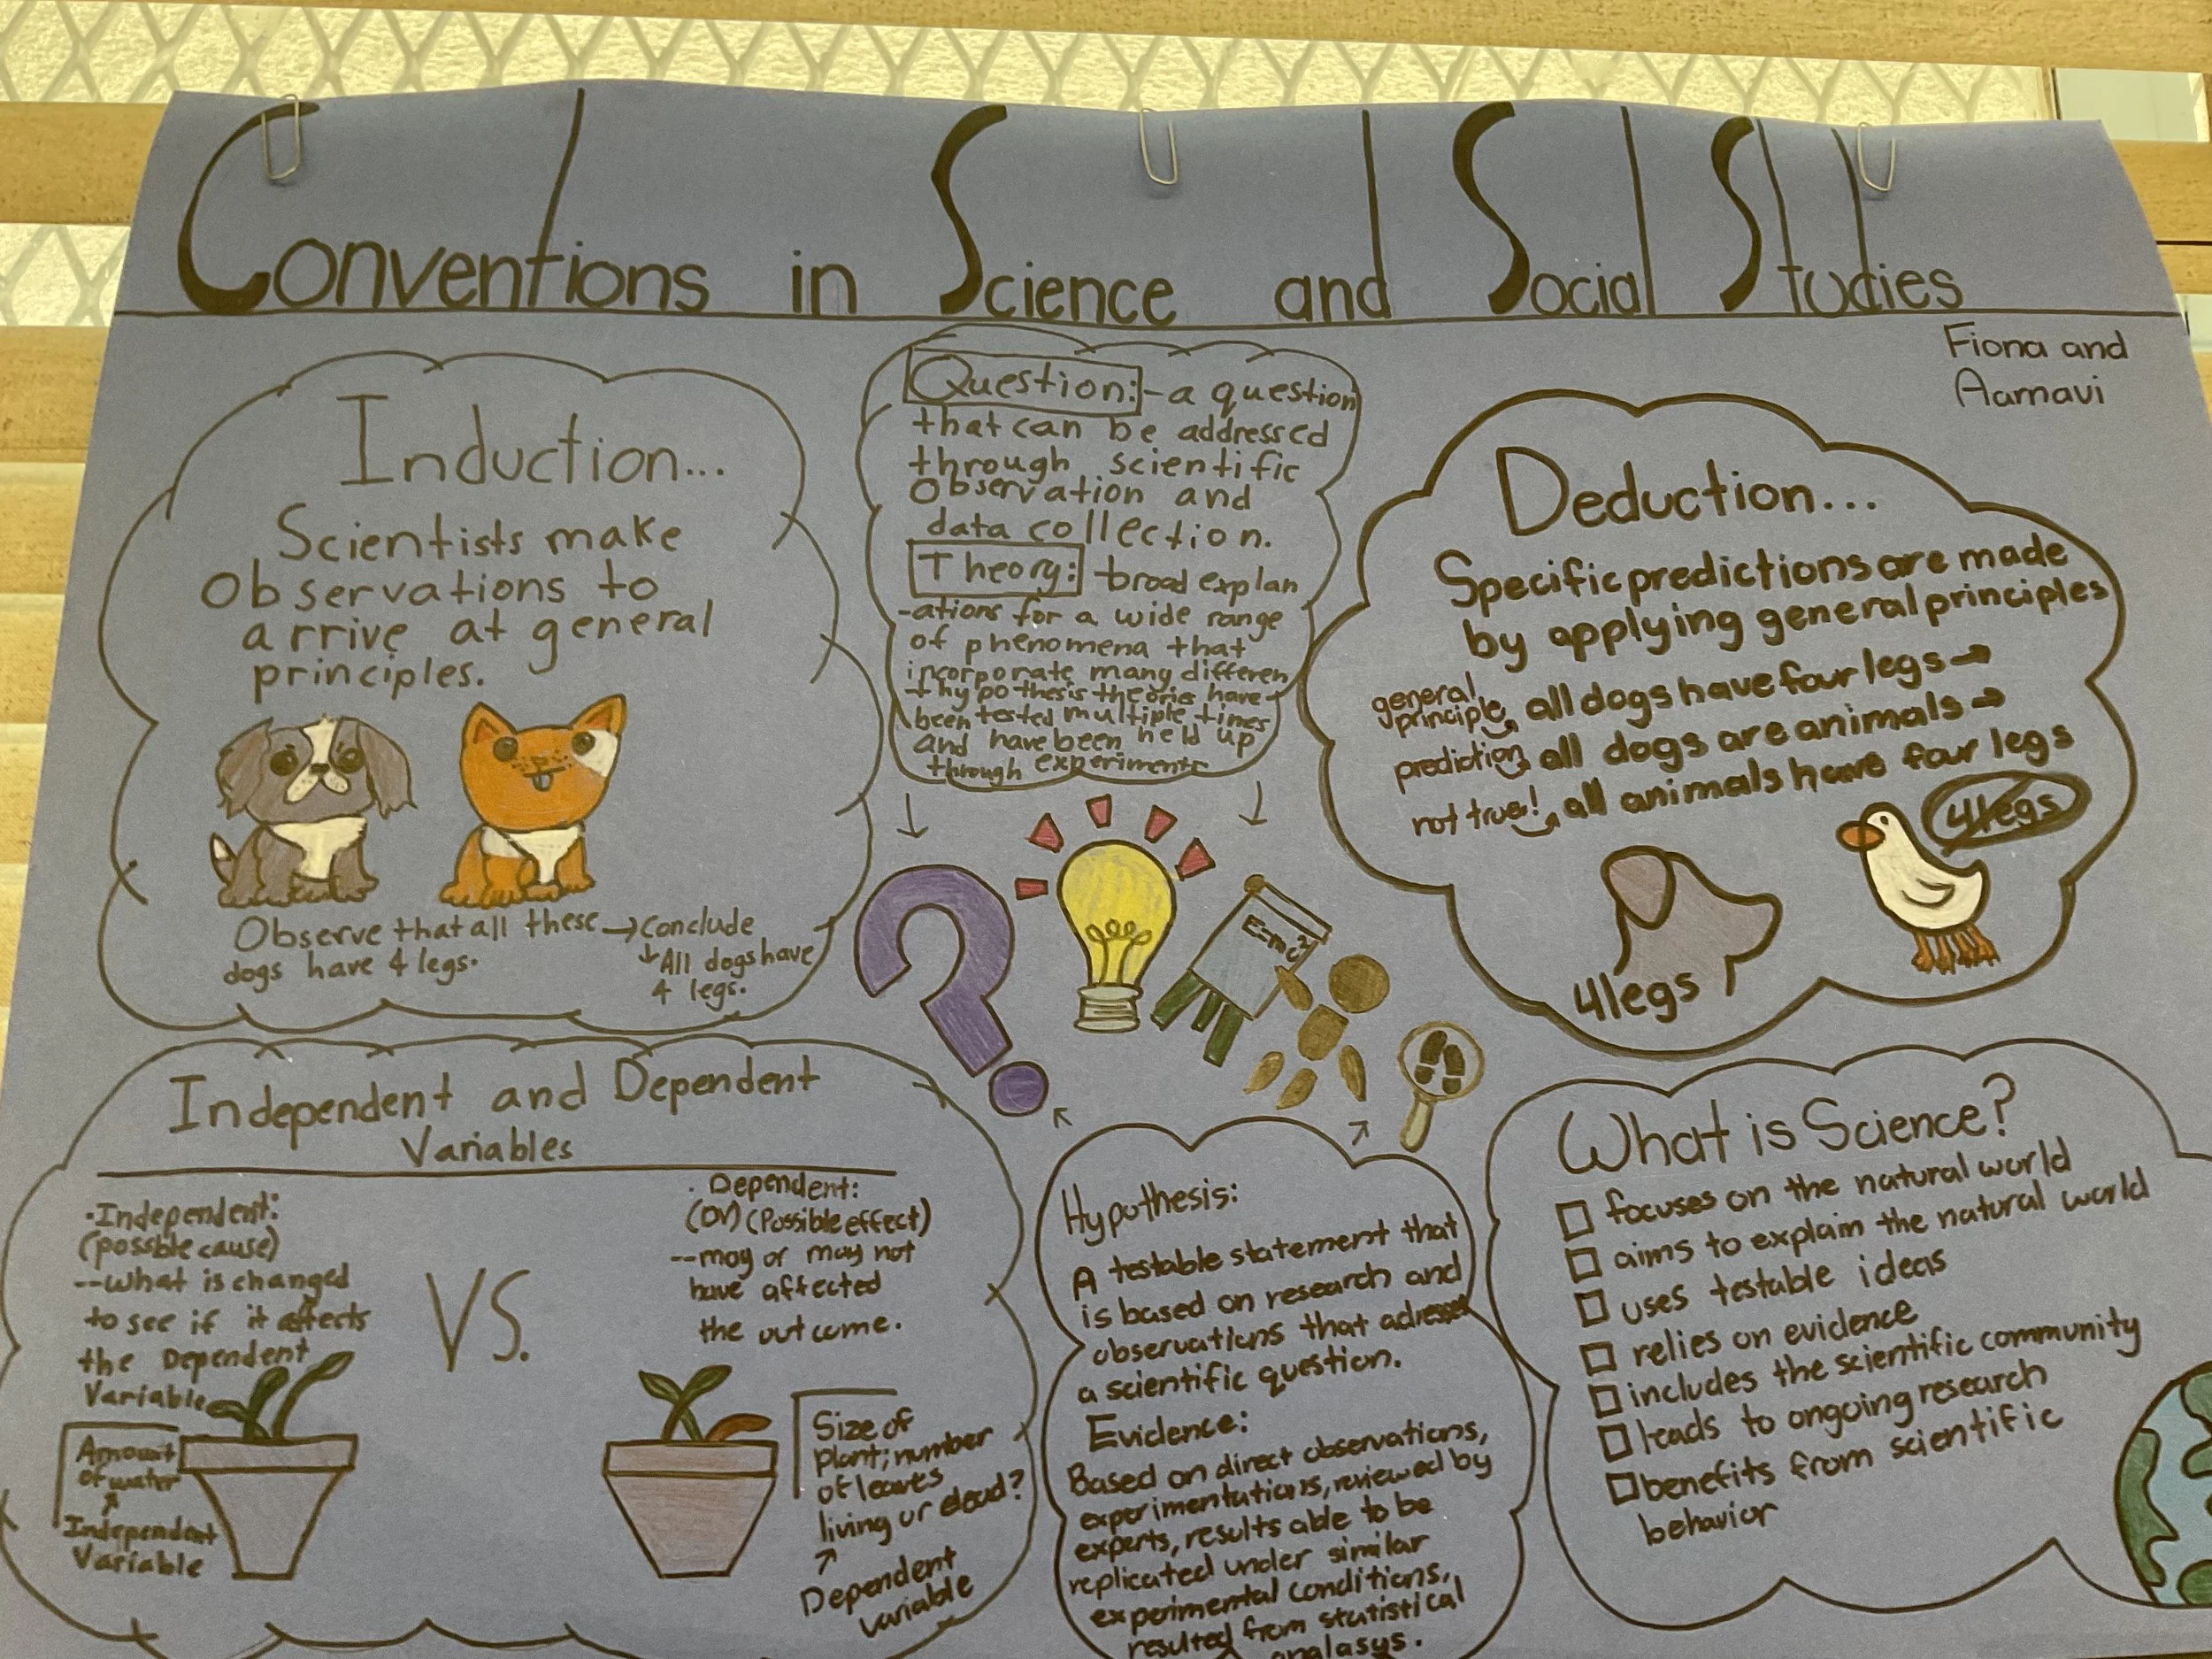 Conventions in Science and Social Studies
Fiona and
Aarnavi
Induction...
Scientists make
observations to
arrive at general
principles.
Observe that all these → Conclude
dogs have 4 legs.
↓ All dogs have
4 legs.
Question: - a question
that can be addressed
through scientific
observation and
data collection.
Theory: broad explan
-ations for a wide range
of phenomena that
incorporate many differen
t hypothesis theories have
been tested multiple times
and have been held up
through experiments
E=mc²
Deduction...
Specific predictions are made
by applying general principles
general
principle all dogs have four legs →
prediction all dogs are animals →
not true! all animals have four legs
4 legs
4 legs
Independent and Dependent
Variables
· Independent:
(possible cause)
--what is changed
to see if it affects
the Dependent
Variable
Amount
of water
Independent
Variable
VS.
· Dependent:
(DV) (Possible effect)
--may or may not
have affected
the outcome.
Size of
plant; number
of leaves
living or dead?
Dependent
variable
Hypothesis:
A testable statement that
is based on research and
observations that adresses
a scientific question.
Evidence:
Based on direct observations,
experimentations, reviewed by
experts, results able to be
replicated under similar
experimental conditions,
resulted from statistical
analasys.
What is Science?
focuses on the natural world
aims to explain the natural world
uses testable ideas
relies on evidence
includes the scientific community
leads to ongoing research
benefits from scientific
behavior